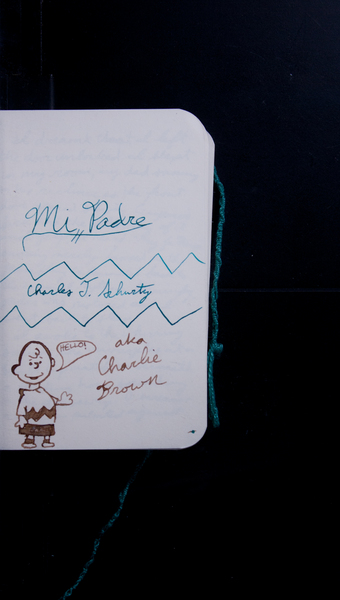 Mi Padre
Charles T. Schurty
HELLO!
aka
Charlie
Brown